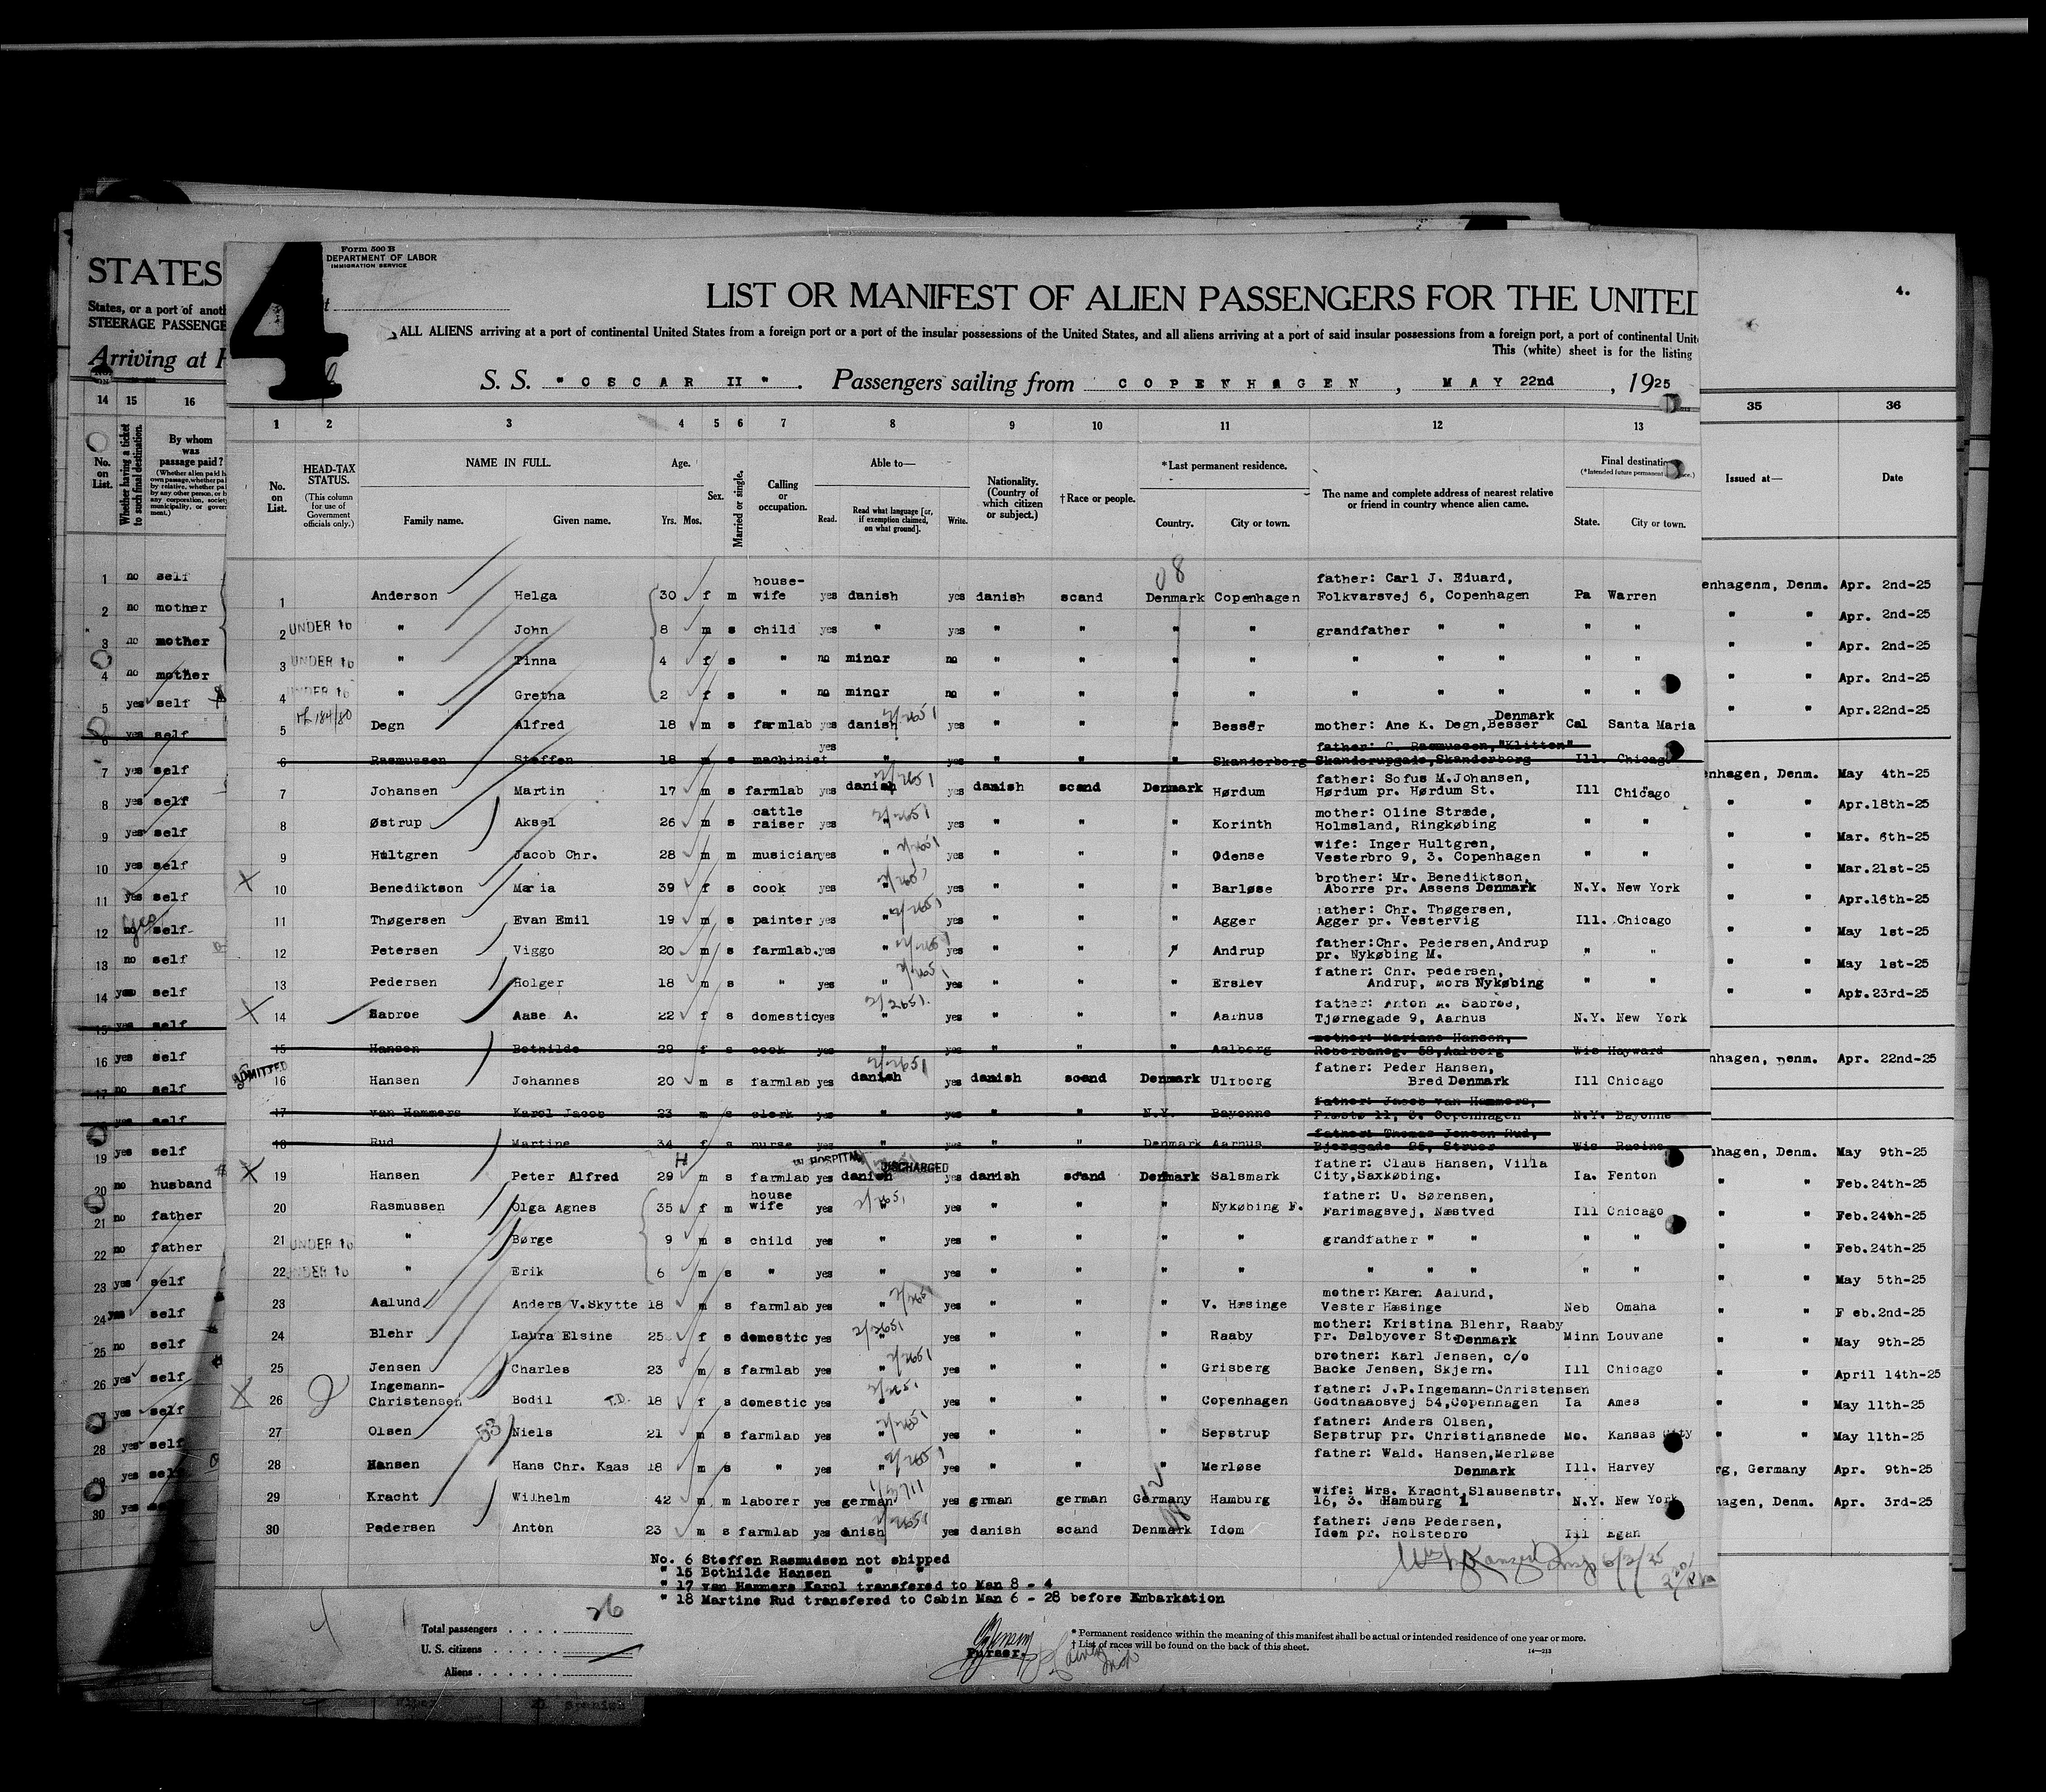 4
Form 500 B
DEPARTMENT OF LABOR
IMMIGRATION SERVICE
4.
STATES
LIST OR MANIFEST OF ALIEN PASSENGERS FOR THE UNITED
States, or a port of anoth
STEERAGE PASSENGE
ALL ALIENS arriving at a port of continental United States from a foreign port or a port of the insular possessions of the United States, and all aliens arriving at a port of said insular possessions from a foreign port, a port of continental Unit
This (white) sheet is for the listing
Arriving at
S. S. "OSCAR II". Passengers sailing from COPENHAGEN, MAY 22nd, 1925
14 15 16
1 2 3 4 5 6 7 8 9 10 11 12 13 35 36
No. on List.
Whether having a ticket to such final destination.
By whom was passage paid?
No. on List.
HEAD-TAX STATUS.
(This column for use of Government officials only.)
NAME IN FULL.
Family name. Given name.
Age.
Yrs. Mos.
Sex.
Married or single.
Calling or occupation.
Able to—
Read. Read what language [or, if exemption claimed, on what ground]. Write.
Nationality. (Country of which citizen or subject.)
†Race or people.
*Last permanent residence.
Country. City or town.
The name and complete address of nearest relative or friend in country whence alien came.
Final destination
(*Intended future permanent
State. City or town.
Issued at—
Date
1 no self
2 no mother
3 no mother
4 no mother
5 yes self
6 yes self
7 yes self
8 yes self
9 yes self
10 yes self
11 yes self
12 no self
13 no self
14 yes self
15 yes self
16 yes self
17 no self
yes self
19 yes self
20 no husband
21 no father
22 no father
23 yes self
24 yes self
25 no self
26 yes self
27 yes self
28 yes self
29 yes self
30 yes self
08
1 Anderson Helga 30 f m house-wife yes danish yes danish scand Denmark Copenhagen father: Carl J. Eduard, Folkvarsvej 6, Copenhagen Pa Warren
2 UNDER 16 " John 8 m s child yes " yes " " " " grandfather " " " "
3 UNDER 16 " Tinna 4 f s " no minor no " " " " " " " " "
4 UNDER 16 " Gretha 2 f s " no minor no " " " " " " " " "
5 Degn Alfred 18 m s farmlab yes danish yes " " " Besser mother: Ane K. Degn, Besser Denmark Cal Santa Maria
6 Rasmussen Steffen 18 m s machinist yes " yes " " " Skanderborg father: C. Rasmussen, "Klitten" Skanderupgade, Skanderborg Ill. Chicago
7 Johansen Martin 17 m s farmlab yes danish yes danish scand Denmark Hørdum father: Sofus M. Johansen, Hørdum pr. Hørdum St. Ill Chicago
8 Østrup Aksel 26 m s cattle raiser yes " yes " " " Korinth mother: Oline Stræde, Holmsland, Ringkøbing " "
9 Hultgren Jacob Chr. 28 m m musician yes " yes " " " Odense wife: Inger Hultgren, Vesterbro 9, 3. Copenhagen " "
10 Benediktson Maria 39 f s cook yes " yes " " " Barløse brother: Mr. Benediktson, Aborre pr. Assens Denmark N.Y. New York
11 Thøgersen Evan Emil 19 m s painter yes " yes " " " Agger father: Chr. Thøgersen, Agger pr. Vestervig Ill. Chicago
12 Petersen Viggo 20 m s farmlab. yes " yes " " " Andrup father: Chr. Pedersen, Andrup pr. Nykøbing M. " "
13 Pedersen Holger 18 m s " yes " yes " " " Erslev father: Chr. pedersen, Andrup, mors Nykøbing " "
14 Sabroe Aase A. 22 f s domestic yes " yes " " " Aarhus father: Anton A. Sabroe, Tjørnegade 9, Aarhus N.Y. New York
15 Hansen Bothilde 29 f s cook yes " yes " " " Aalborg mother: Mariane Hansen, 58, Aalborg Wis Hayward
ADMITTED
16 Hansen Johannes 20 m s farmlab yes danish yes danish scand Denmark Ulfborg father: Peder Hansen, Bred Denmark Ill Chicago
17 van Hammers Karol Jacob 23 m s clerk yes " yes " " N.Y. Bayonne father: Jacob van Hammers, Præstø 11, 3. Copenhagen N.Y. Bayonne
18 Rud Martine 34 f s nurse yes " yes " " Denmark Aarhus father: Thomas Jensen Rud, Bjerggade 25, Struer Wis Racine
IN HOSPITAL DISCHARGED
19 Hansen Peter Alfred 29 m s farmlab yes danish yes danish scand Denmark Salsmark father: Claus Hansen, Villa City, Saxkøbing. Ia. Fenton
20 Rasmussen Olga Agnes 35 f m house wife yes " yes " " " Nykøbing F. father: U. Sørensen, Farimagsvej, Næstved Ill Chicago
21 UNDER 16 " Børge 9 m s child yes " yes " " " " grandfather " " " "
22 UNDER 16 " Erik 6 m s " yes " yes " " " " " " " " "
23 Aalund Anders V. Skytte 18 m s farmlab yes " yes " " " V. Hæsinge mother: Karen Aalund, Vester Hæsinge Neb Omaha
24 Blehr Laura Elsine 25 f s domestic yes " yes " " " Raaby mother: Kristina Blehr, Raaby pr. Dalbyover St. Denmark Minn Louvane
25 Jensen Charles 23 m s farmlab yes " yes " " " Grisberg brother: Karl Jensen, c/o Backe Jensen, Skjern. Ill Chicago
26 Ingemann-Christensen Bodil T.D. 18 f s domestic yes " yes " " " Copenhagen father: J.P. Ingemann-Christensen Godtnaabsvej 54, Copenhagen Ia Ames
27 Olsen 53 Niels 21 m s farmlab yes " yes " " " Sepstrup father: Anders Olsen, Sepstrup pr. Christianshede Mo. Kansas City
28 Hansen Hans Chr. Kaas 18 m s " yes " yes " " " Merløse father: Wald. Hansen, Merløse Denmark Ill. Harvey
29 Kracht Wilhelm 42 m m laborer yes german yes grman german Germany Hamburg wife: Mrs. Kracht, Slausenstr. 16, 3. Hamburg 1 N.Y. New York
30 Pedersen Anton 23 m s farmlab yes dnish yes danish scand Denmark Idom father: Jens Pedersen, Idom pr. Holstebro Ill Egan
enhagenm, Denm. Apr. 2nd-25
" " Apr. 2nd-25
" " Apr. 2nd-25
" " Apr. 2nd-25
" " Apr. 22nd-25
nhagen, Denm. May 4th-25
" " Apr. 18th-25
" " Mar. 6th-25
" " Mar. 21st-25
" " Apr. 16th-25
" " May 1st-25
" " May 1st-25
" " Apr. 23rd-25
nhagen, Denm. Apr. 22nd-25
nhagen, Denm. May 9th-25
" " Feb. 24th-25
" " Feb. 24th-25
" " Feb. 24th-25
" " May 5th-25
" " Feb. 2nd-25
" " May 9th-25
" " April 14th-25
" " May 11th-25
" " May 11th-25
rg, Germany Apr. 9th-25
hagen, Denm. Apr. 3rd-25
No. 6 Steffen Rasmussen not shipped
" 15 Bothilde Hansen " "
" 17 van Hammers Karol transfered to Man 8 - 4
" 18 Martine Rud transfered to Cabin Man 6 - 28 before Embarkation
Total passengers 26
U. S. citizens
Aliens
Purser.
* Permanent residence within the meaning of this manifest shall be actual or intended residence of one year or more.
† List of races will be found on the back of this sheet.
14—213